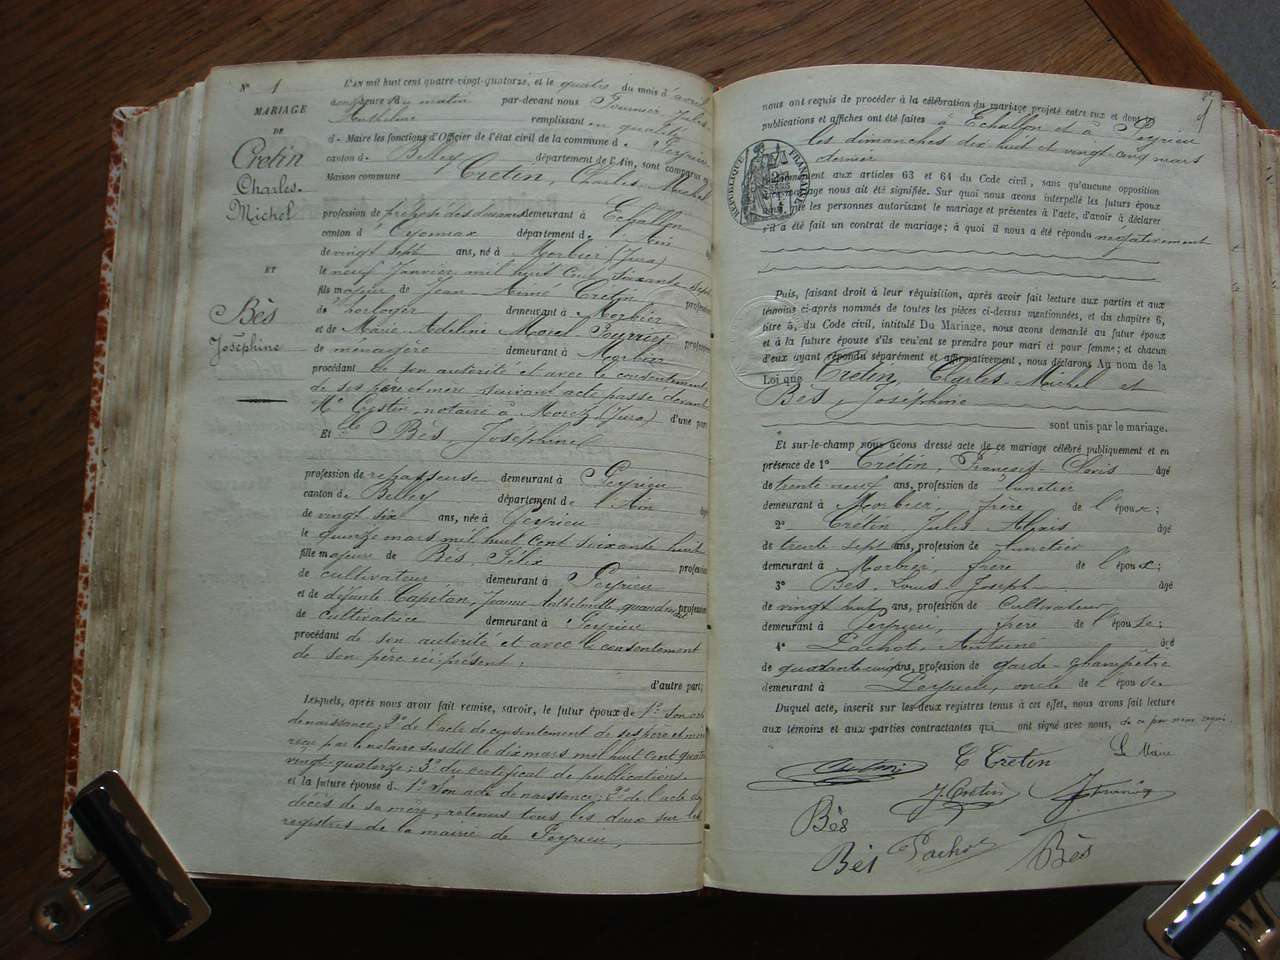 N° 1
MARIAGE
DE
Cretin
Charles
Michel
ET
Bès
Joséphine
L'AN mil huit cent quatre-vingt-quatorze, et le quatre du mois d'avril
du matin par-devant nous Jules
Anthelme remplissant en qualité
d Maire les fonctions d'Officier de l'état civil de la commune de Peyrieu
canton de Belley département de l'Ain, sont comparus en
Maison commune Cretin, Charles Michel
profession de préposé des douanes demeurant à Echallon
canton d'Oyonnax département de l'Ain
de vingt sept ans, né à Morbier (Jura)
le neuf Janvier mil huit cent soixante sept
fils majeur de Jean Aimé Cretin profession
de horloger demeurant à Morbier
et de Marie Adeline Morel Fourrier profession
de ménagère demeurant à Morbier
procédant de son autorité et avec le consentement
de ses père et mère suivant acte passé devant
Me Crestin, notaire à Morez (Jura) d'une part
Et Bès, Joséphine
profession de repasseuse demeurant à Peyrieu
canton de Belley département de l'Ain
de vingt six ans, née à Peyrieu
le quinze mars mil huit cent soixante huit
fille majeure de Bès, Félix profession
de cultivateur demeurant à Peyrieu
et de défunte Capitan, Jeanne Anthelmette quand vivait profession
de cultivatrice demeurant à Peyrieu
procédant de son autorité et avec le consentement
de son père ici présent;
d'autre part;
Lesquels, après nous avoir fait remise, savoir, le futur époux de 1° Son acte
de naissance; 2° de l'acte de consentement de ses père et mère
reçu par le notaire susdit le dix mars mil huit cent quatre
vingt-quatorze; 3° du certificat de publications.
et la future épouse d 1° Son acte de naissance; 2° de l'acte de
décès de sa mère, retenus tous les deux sur les
registres de la mairie de Peyrieu,
nous ont requis de procéder à la célébration du mariage projeté entre eux et dont les
publications et affiches ont été faites à Echallon et à Peyrieu
les dimanches dix huit et vingt-cinq mars
dernier
RÉPUBLIQUE FRANÇAISE
conformément aux articles 63 et 64 du Code civil, sans qu'aucune opposition
mariage nous ait été signifiée. Sur quoi nous avons interpellé les futurs époux
que les personnes autorisant le mariage et présentes à l'acte, d'avoir à déclarer
s'il a été fait un contrat de mariage; à quoi il nous a été répondu négativement
Puis, faisant droit à leur réquisition, après avoir fait lecture aux parties et aux
témoins ci-après nommés de toutes les pièces ci-dessus mentionnées, et du chapitre 6,
titre 5, du Code civil, intitulé Du Mariage, nous avons demandé au futur époux
et à la future épouse s'ils veulent se prendre pour mari et pour femme; et chacun
d'eux ayant répondu séparément et affirmativement, nous déclarons Au nom de la
Loi que Cretin, Charles Michel et
Bès, Joséphine
sont unis par le mariage.
Et sur-le-champ nous avons dressé acte de ce mariage célébré publiquement et en
présence de 1° Crétin, François Clovis âgé
de trente neuf ans, profession de lunetier
demeurant à Morbier, frère de l'époux;
2° Cretin Jules Alexis âgé
de trente sept ans, profession de lunetier
demeurant à Morbier, frère de l'époux;
3° Bès, Louis Joseph âgé
de vingt huit ans, profession de Cultivateur
demeurant à Peyrieu, frère de l'épouse;
4° Pachot, Antoine âgé
de quarante cinq ans, profession de garde-champêtre
demeurant à Peyrieu, oncle de l'épouse
Duquel acte, inscrit sur les deux registres tenus à cet effet, nous avons fait lecture
aux témoins et aux parties contractantes qui ont signé avec nous, de ce par nous requis.
Le Maire
C Cretin
J. Crétin
Bès
Bès Pachot Bès